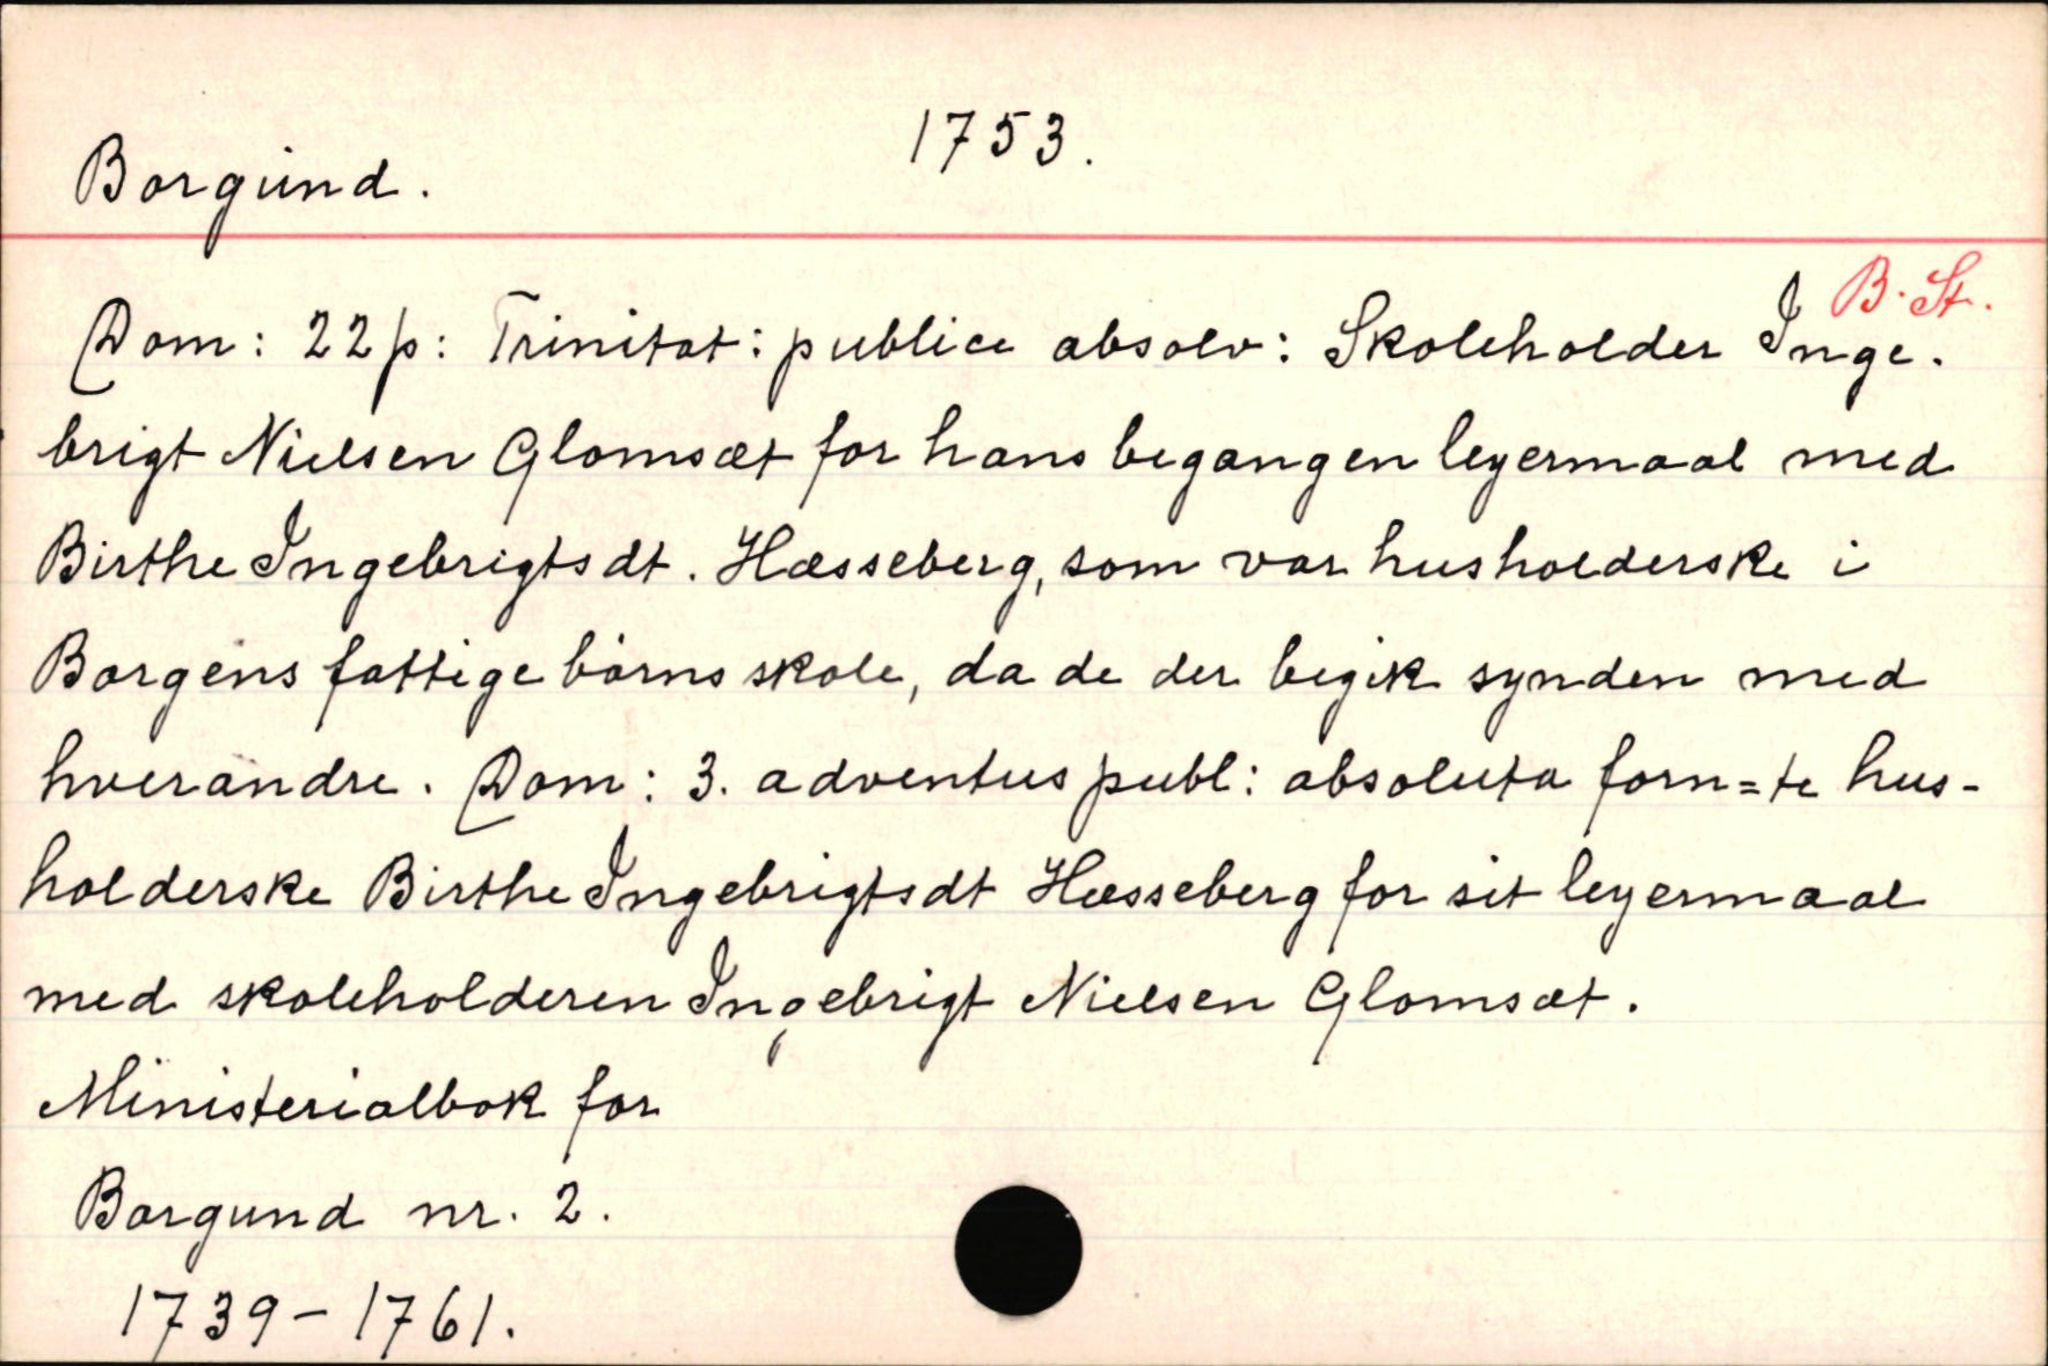 1753.
Borgund.
B. St.
Dom: 22 p: Trinitat: publice absolv: Skoleholder Inge-
brigt Nielsen Glomsæt for hans begangen leyermaal med
Birthe Ingebrigtsdt. Hæsseberg, som var husholderske i
Borgens fattige börns skole, da de der begik synden med
hverandre. Dom: 3. adventus publ: absoluta forn=te hus-
holderske Birthe Ingebrigtsdt Hæsseberg for sit leyermaal
med skoleholderen Ingebrigt Nielsen Glomsæt.
Ministerialbok for
Borgund nr. 2.
1739-1761.